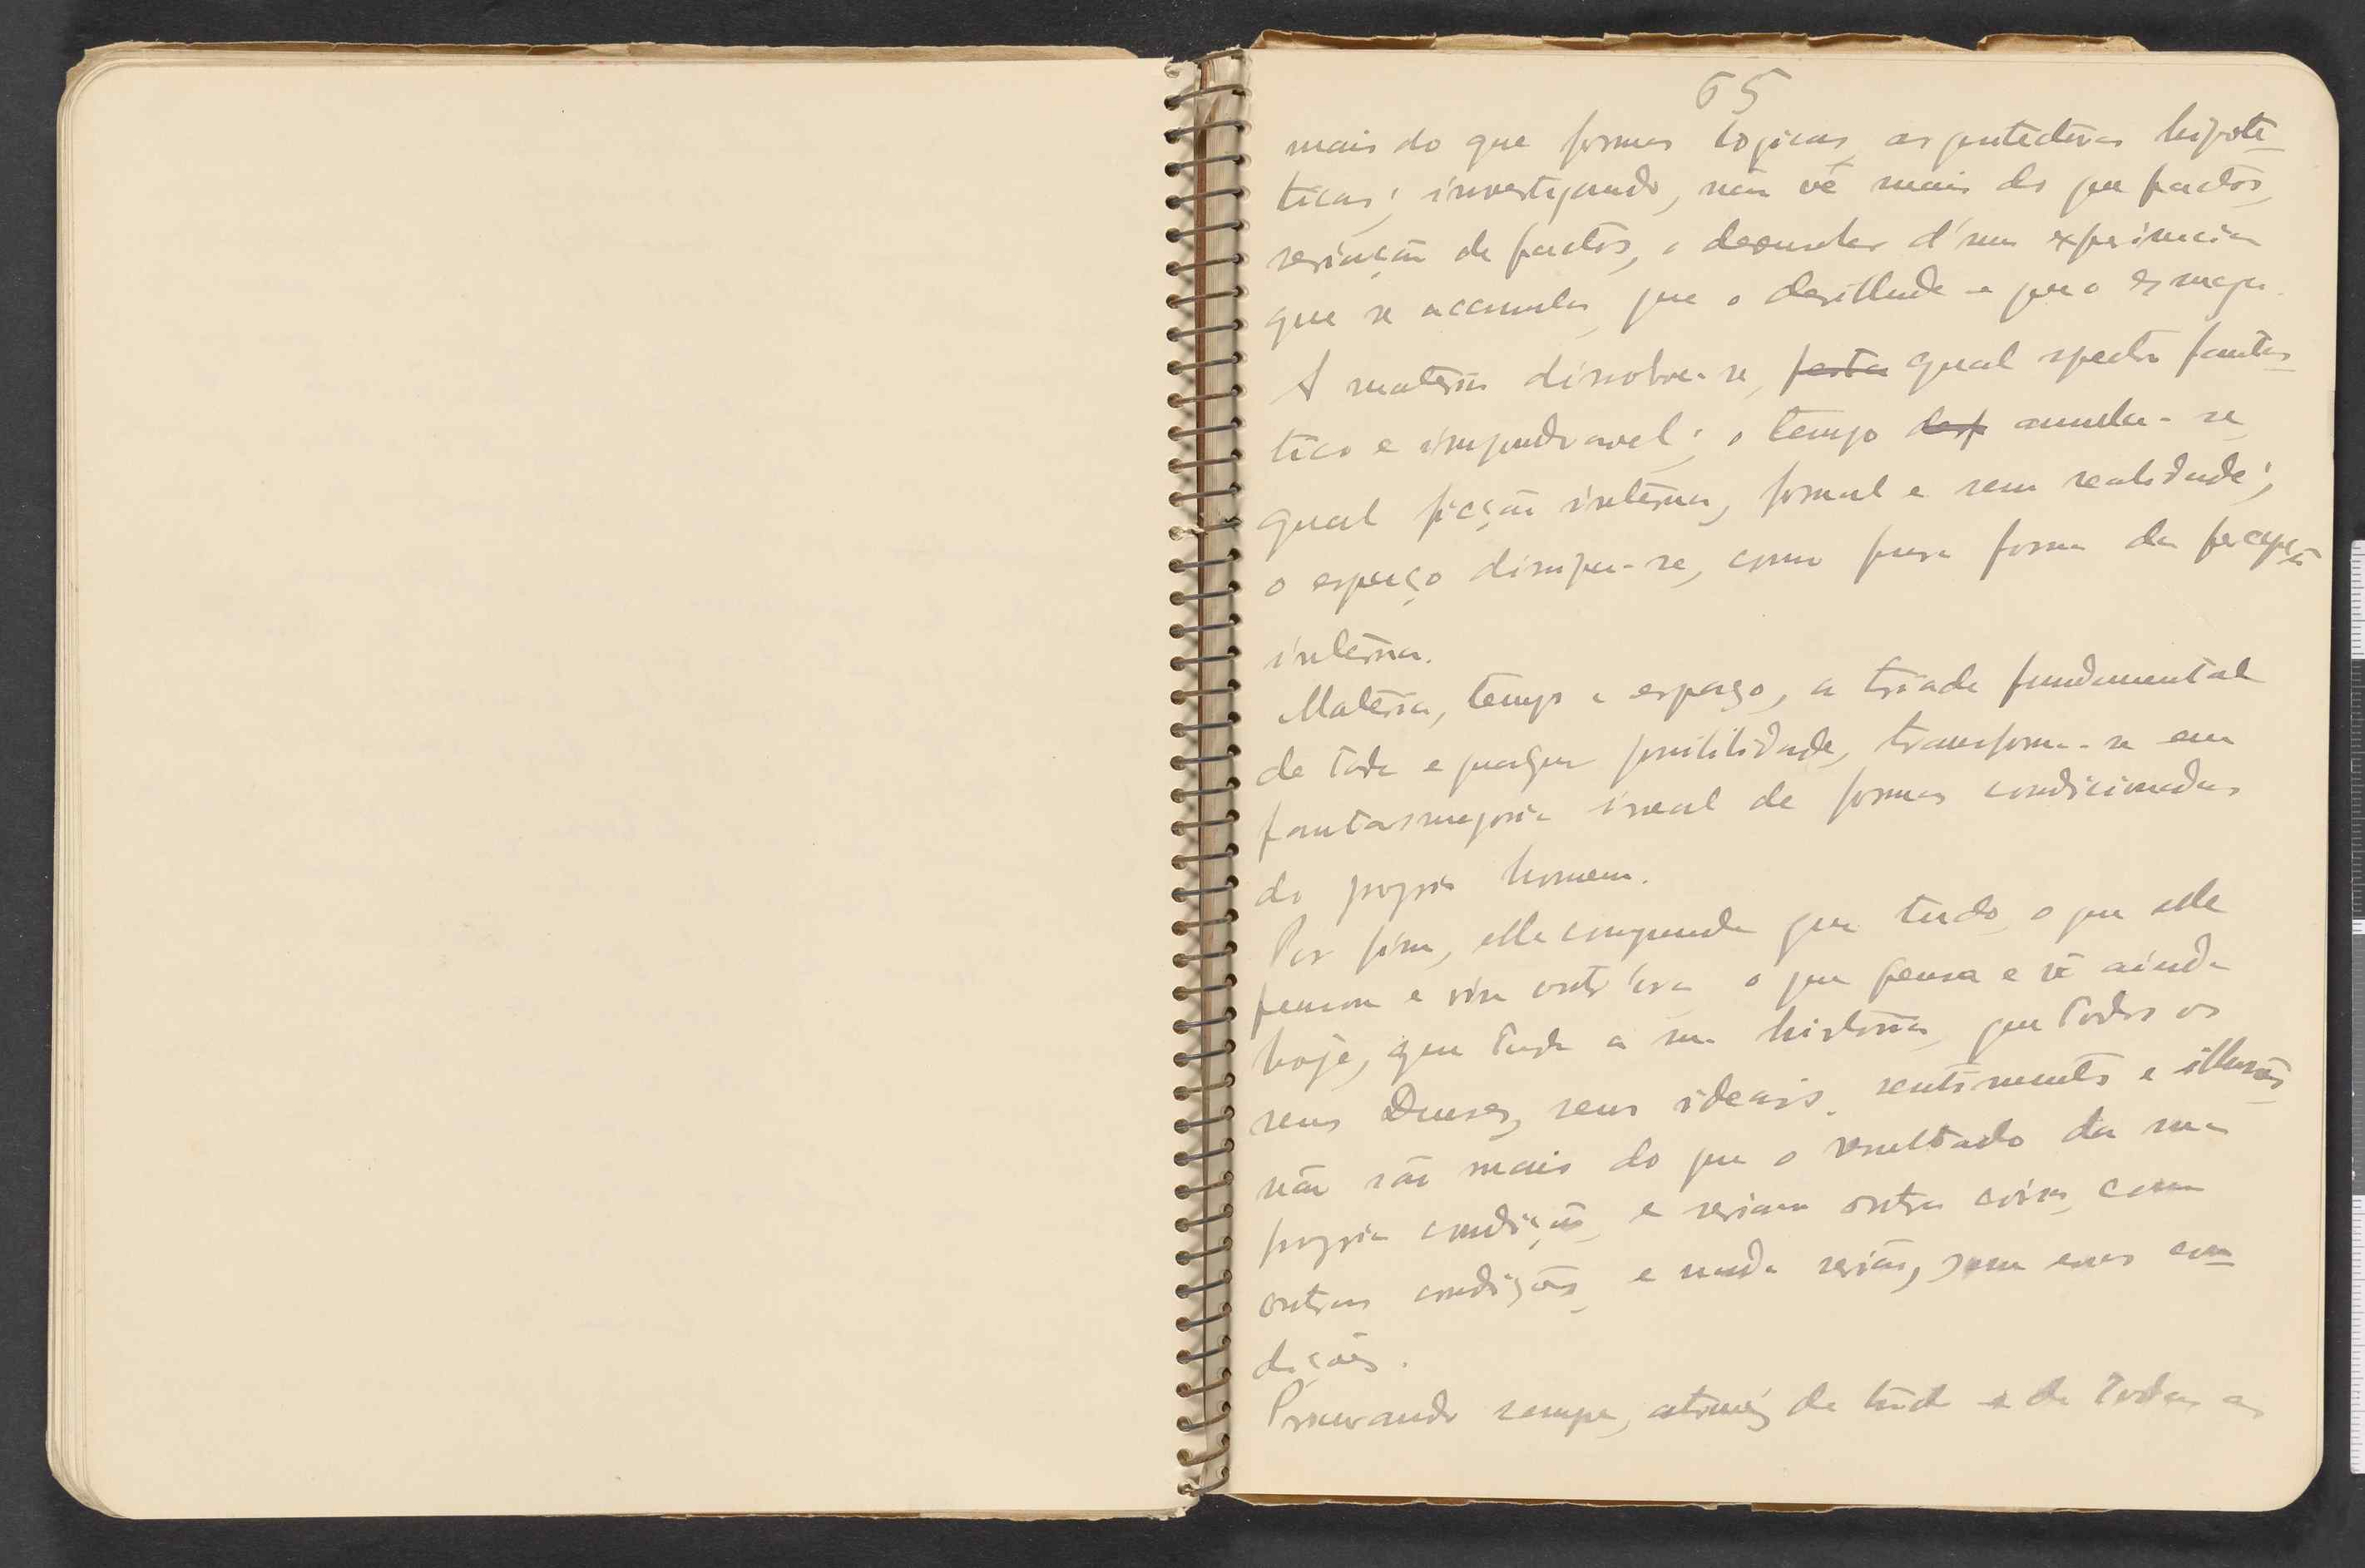 65
mais do que formas logicas, arquitecturas hipote-
ticas; investigando, não vê mais do que factos,
seriação de factos, o desenrolar d'uma experiencia
que se accumula, que o desillude e que o esmaga.
A materia dissolve-se, qual espectro fantas-
tico e imponderavel; o tempo annula-se,
qual ficção interna, formal e sem realidade;
o espaço dissipa-se, como pura forma da percepção
interna.
Materia, tempo e espaço, a triade fundamental
de toda e qualquer possibilidade, transforma-se em
fantasmagoria irreal de formas condicionadas
do proprio homem.
Por fim, elle comprehende que tudo o que elle
pensou e viu outr'ora o que pensa e vê ainda
hoje, que toda a sua historia, que todos os
seus Deuses, seus ideais, sentimentos e illusões
não são mais do que o resultado da sua
propria condição, e seriam outra coisa, com
outras condições, e nada serião, sem essas con-
dições.
Procurando sempre, atravez de tudo e de todas as